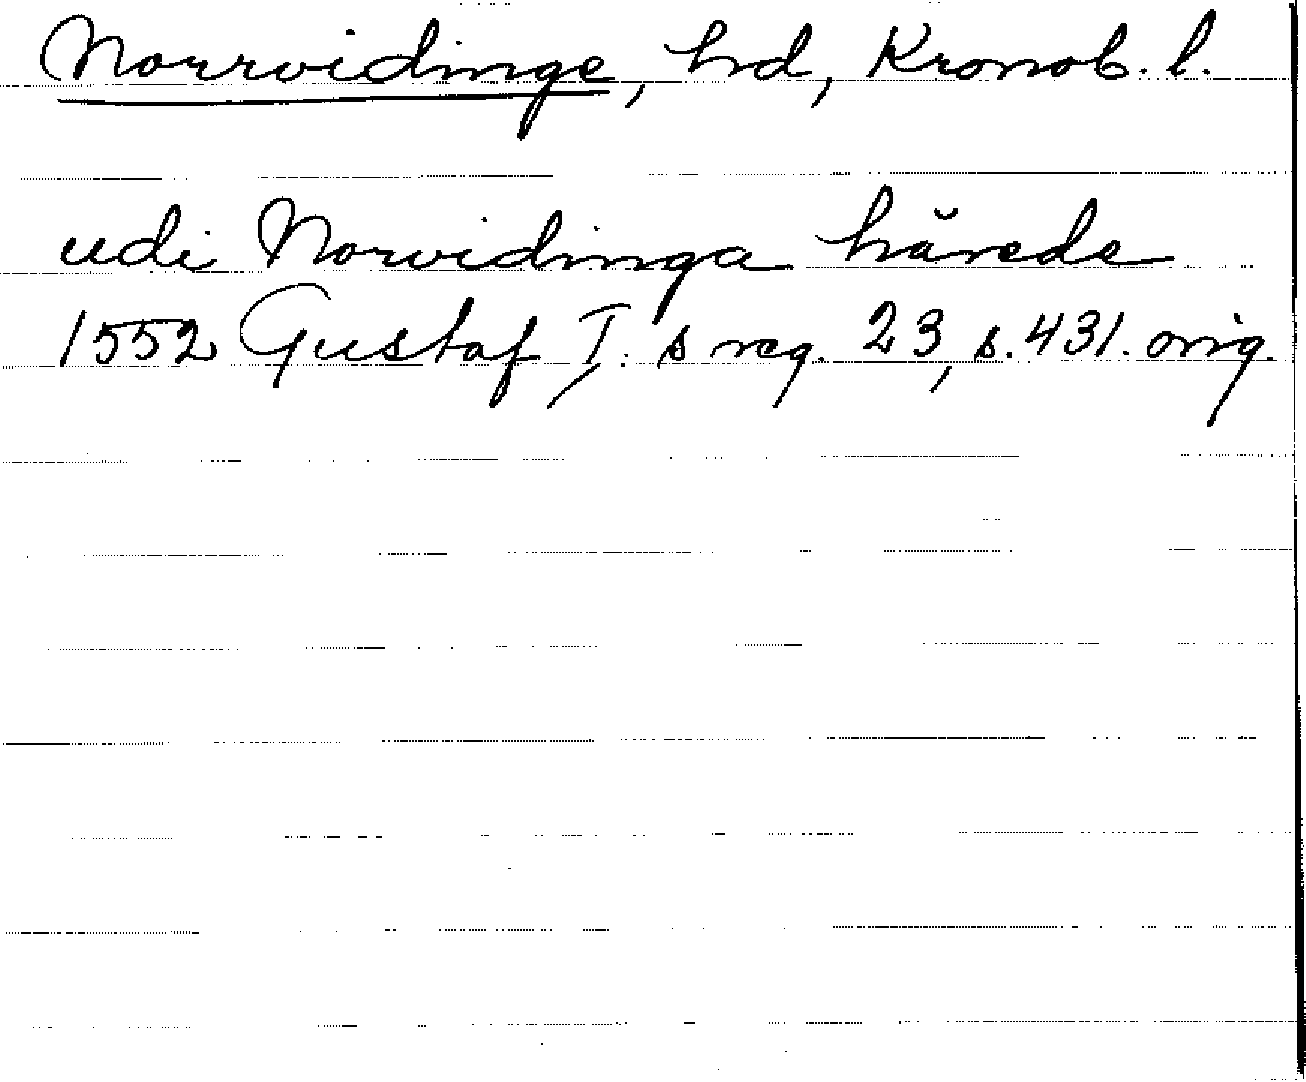 Norrvidinge, hd, Kronob. l.
udi Norvidinga härede
1552 Gustaf I. s reg. 23, s. 431. orig.